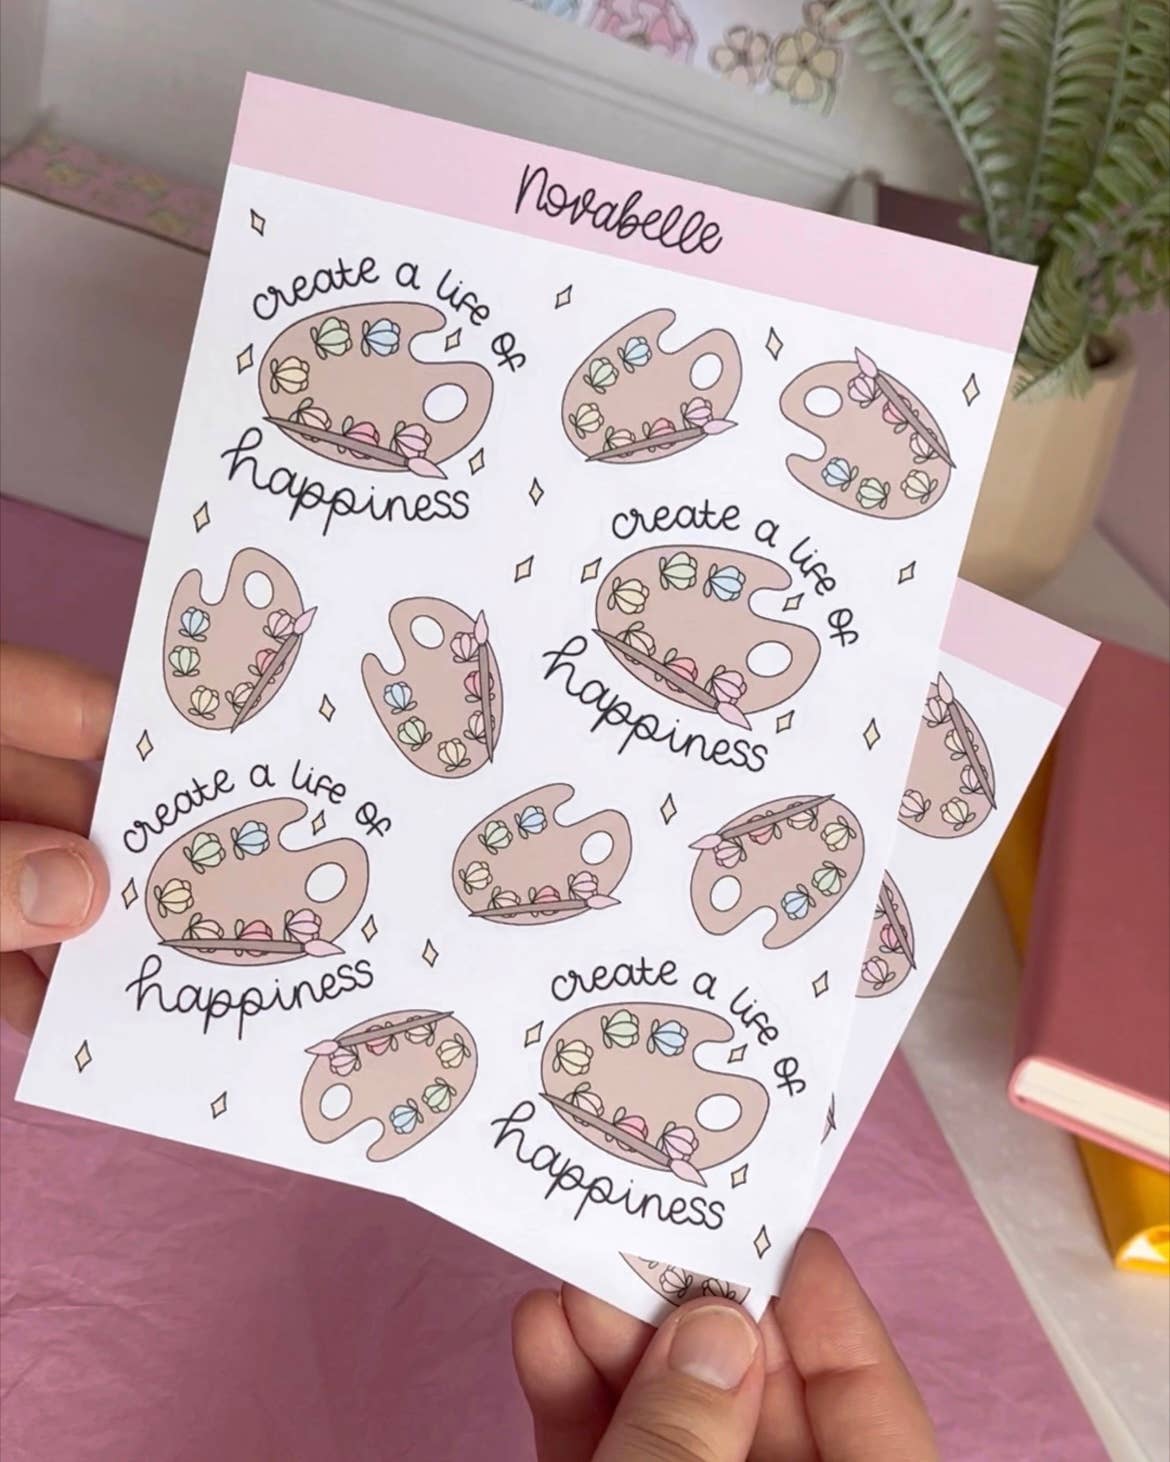 Novabelle
create a life of
happiness
create a life of
happiness
create a life of
happiness
create a life of
happiness